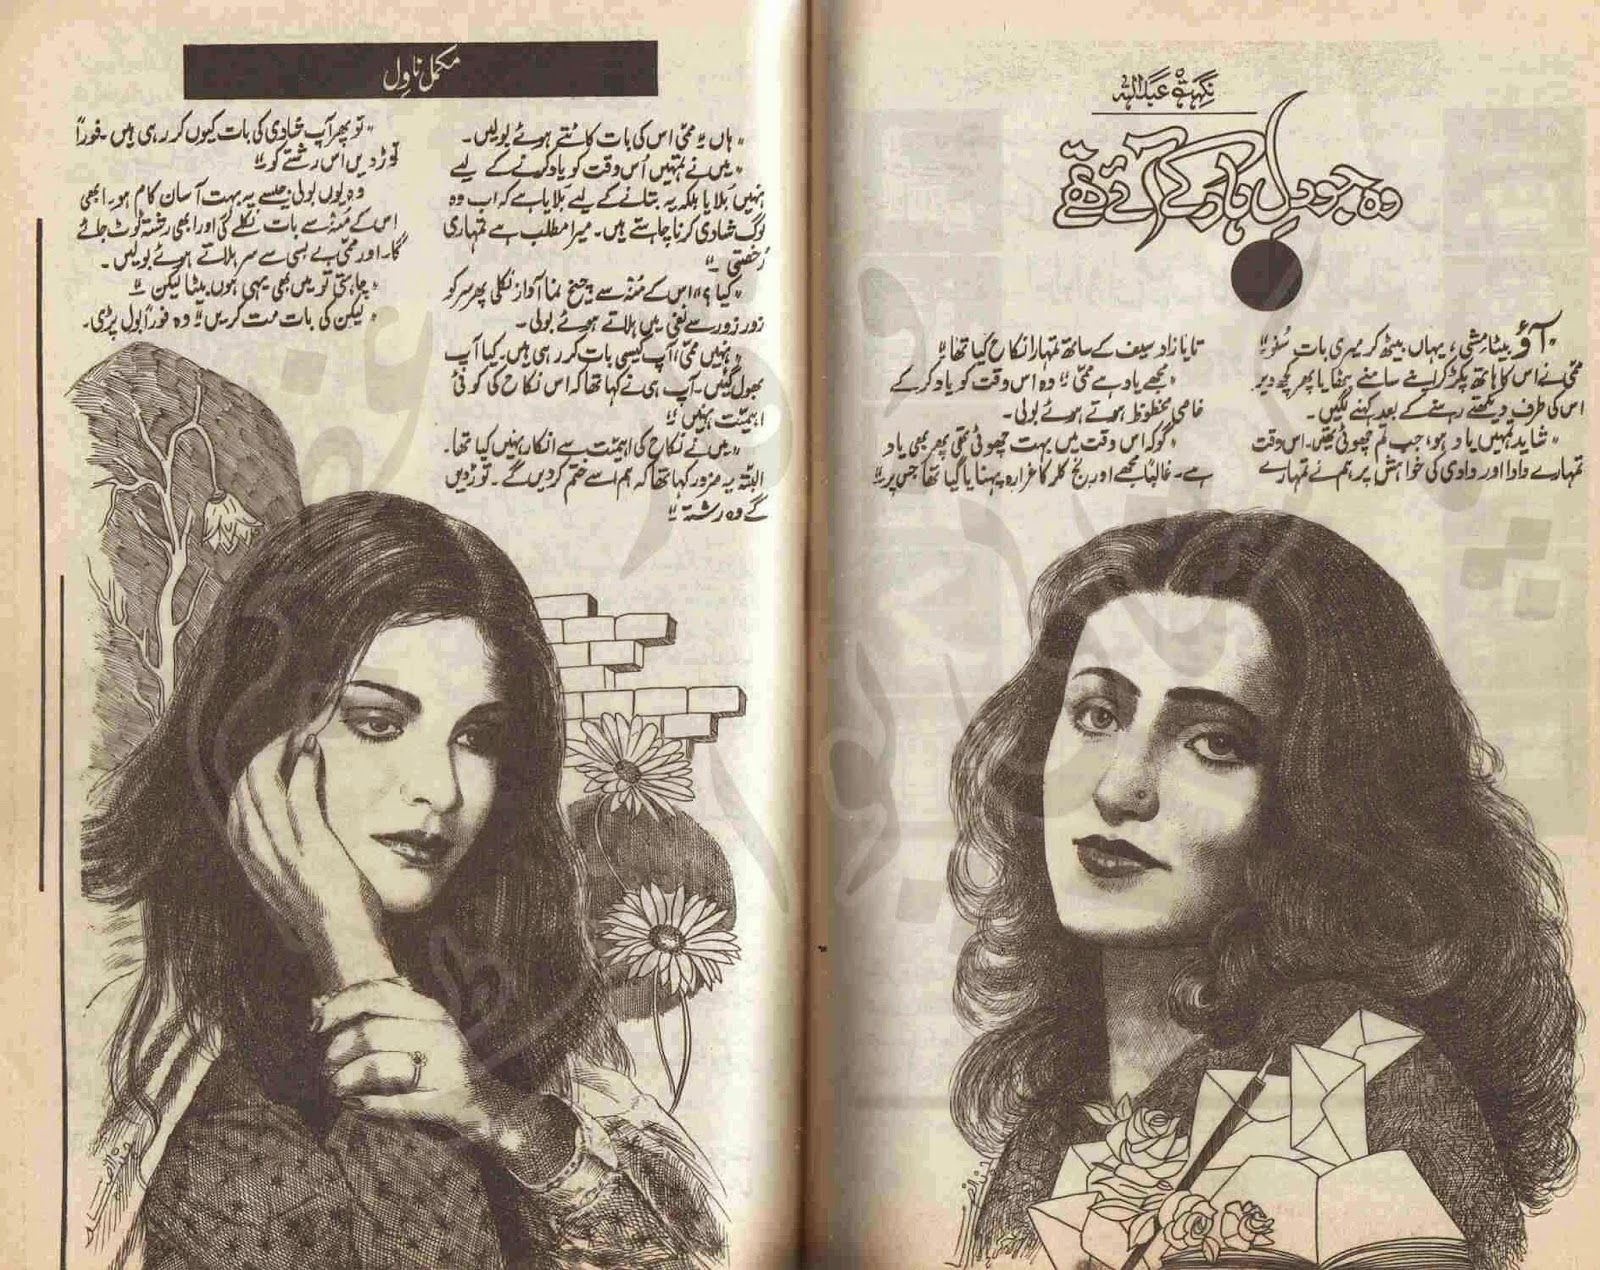 نگہت عبداللہ
وہ جو دل ہار کے آئے تھے
"آؤ بیٹا مشی، یہاں بیٹھ کر میری بات سنو۔"
ممّی نے اس کا ہاتھ پکڑ کر اپنے سامنے بٹھایا پھر کچھ دیر
اس کی طرف دیکھتے رہنے کے بعد کہنے لگیں۔
"شاید تمہیں یاد ہو، جب تم چھوٹی تھیں۔ اس وقت
تمہارے دادا اور دادی کی خواہش پر ہم نے تمہارے
تایا زاد سیف کے ساتھ تمہارا نکاح کیا تھا۔"
"مجھے یاد ہے ممّی۔" وہ اس وقت کو یاد کر کے
خاصی محظوظ ہوتے ہوئے بولی۔
"گو کہ اس وقت میں بہت چھوٹی تھی پھر بھی یاد
ہے۔ غالباً مجھے اورنج کلر کا غرارہ پہنایا گیا تھا جس پر۔"
مکمل ناول
"ہاں۔" ممّی اس کی بات کاٹتے ہوئے بولیں۔
"میں نے تمہیں اُس وقت کو یاد کرنے کے لیے
نہیں بلایا بلکہ یہ بتانے کے لیے بلایا ہے کہ اب وہ
لوگ شادی کرنا چاہتے ہیں۔ میرا مطلب ہے تمہاری
رُخصتی۔"
"کیا؟" اس کے منہ سے چیخ نما آواز نکلی پھر سر کو
زور زور سے نفی میں ہلاتے ہوئے بولی۔
"نہیں ممّی، آپ کیسی بات کر رہی ہیں۔ کیا آپ
بھول گئیں۔ آپ ہی نے کہا تھا کہ اس نکاح کی کوئی
اہمیّت نہیں۔"
"میں نے نکاح کی اہمیّت سے انکار نہیں کیا تھا۔
البتہ یہ ضرور کہا تھا کہ ہم اسے ختم کر دیں گے۔ توڑ دیں
گے وہ رشتہ۔"
"تو پھر آپ شادی کی بات کیوں کر رہی ہیں۔ فوراً
توڑ دیں اس رشتے کو۔"
وہ یوں بولی جیسے یہ بہت آسان کام ہو۔ ابھی
اس کے منہ سے بات نکلے گی اور ابھی رشتہ ٹوٹ جائے
گا۔ اور ممّی بے بسی سے سر ہلاتے ہوئے بولیں۔
"چاہتی تو میں بھی یہی ہوں بیٹا لیکن۔"
"لیکن کی بات مت کریں۔" وہ فوراً بول پڑی۔